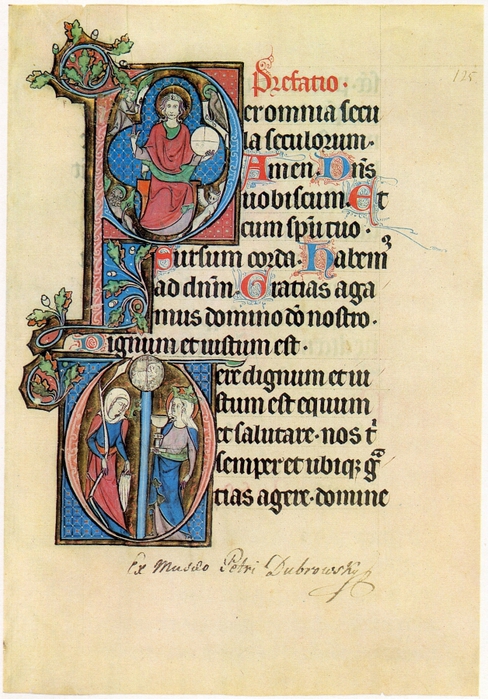 Prefatio.
125
Per omnia secu
la seculorum.
Amen. Dn̄s
uobiscum. Et
cum sp̄u tuo.
Sursum corda. Habem᷒
ad dn̄m. Gratias aga
mus domino dō nostro.
Dignum et iustum est.
Vere dignum et iu
stum est equum
et salutare. nos t̄
semper et ubiqꝫ gͣ
tias agere. domine
Ex Musæo Petri Dubrowsky